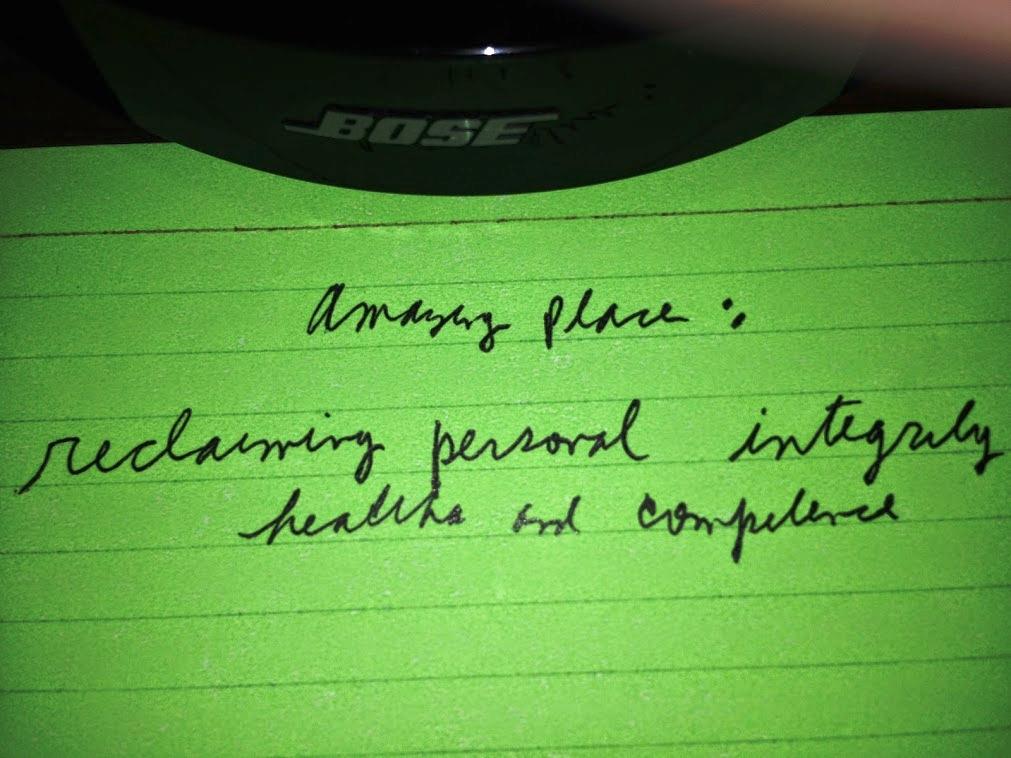 BOSE
Amazing place :
reclaiming personal integrity
health and competence